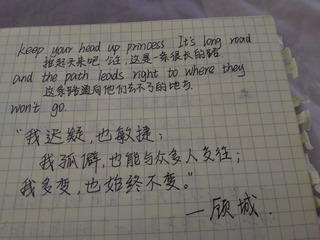 keep your head up princess. It's long road
抬起头来吧 公主，这是一条很长的路
and the path leads right to where they
这条路通向他们去不了的地方.
won't go.
“我迟疑，也敏捷；
我孤僻，也能与众多人交往；
我多变，也始终不变。”
—顾城.